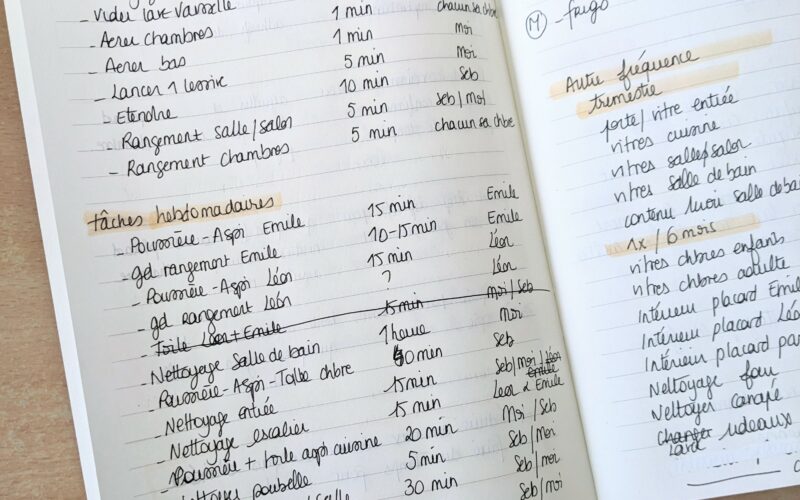 - Vider lave vaisselle 1 min chacun sa chbre
- Aerer chambres 1 min Moi
- Aerer bas 5 min Moi
- Lancer 1 lessive 10 min Seb
- Etendre 5 min Seb/Moi
- Rangement salle/salon 5 min chacun sa chbre
- Rangement chambres
tâches hebdomadaires
- Poussière - Aspi Emile 15 min Emile
- gd rangement Emile 10-15 min Emile
- Poussière - Aspi Léon 15 min Léon
- gd rangement Léon ? Léon
- Toile Léon + Emile 15 min Moi/Seb
- Nettoyage salle de bain 1 heure Moi
- Poussière - Aspi - Toile chbre 40 min Seb
- Nettoyage entrée 15 min Seb/Moi/Léon Emile
- Nettoyage escalier 15 min Leon & Emile
- Poussière + toile aspi cuisine 20 min Moi/Seb
poubelle 5 min Seb/Moi
/Salle 30 min Seb/Moi
M - frigo
Autre fréquence
trimestre
porte/vitre entrée
vitres cuisine
vitres salle/salon
vitres salle de bain
contenu salle de bain
1x/6 mois
vitres chbres enfants
vitres chbres adulte
Intérieur placard Emil
Intérieur placard Léo
Intérieur placard par
Nettoyage four
Nettoyer canapé
changer rideaux
Lavé